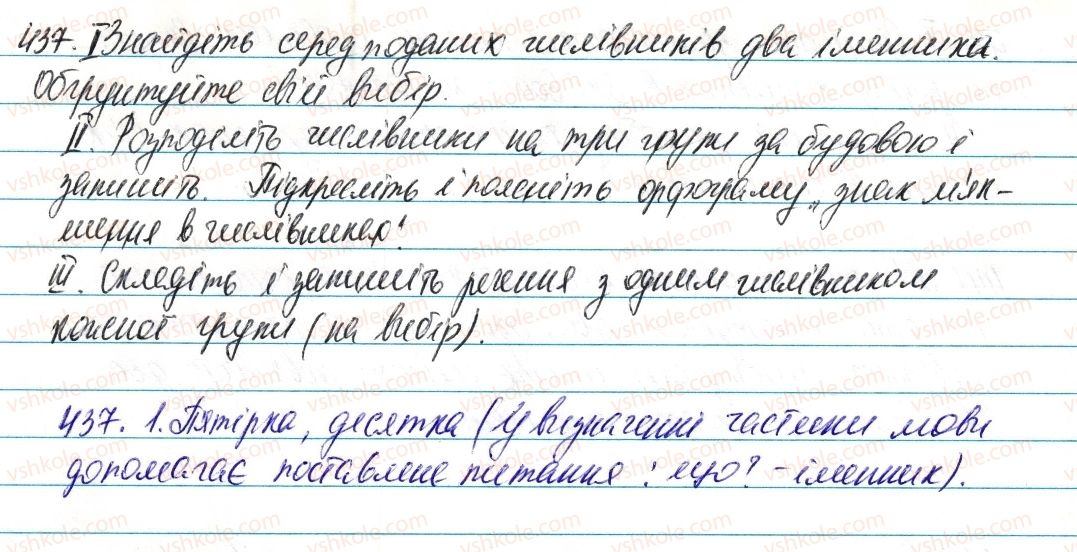 437. I Знайдіть серед поданих числівників два іменника.
Обґрунтуйте свій вибір.
II. Розподіліть числівники на три групи за будовою і
запишіть. Підкресліть і поясніть орфограму „знак м'як-
шення в числівниках".
III. Складіть і запишіть речення з одним числівником
кожної групи (на вибір).
437. 1. П'ятірка, десятка (У визначенні частини мови
допомагає поставлене питання: що? - іменник).